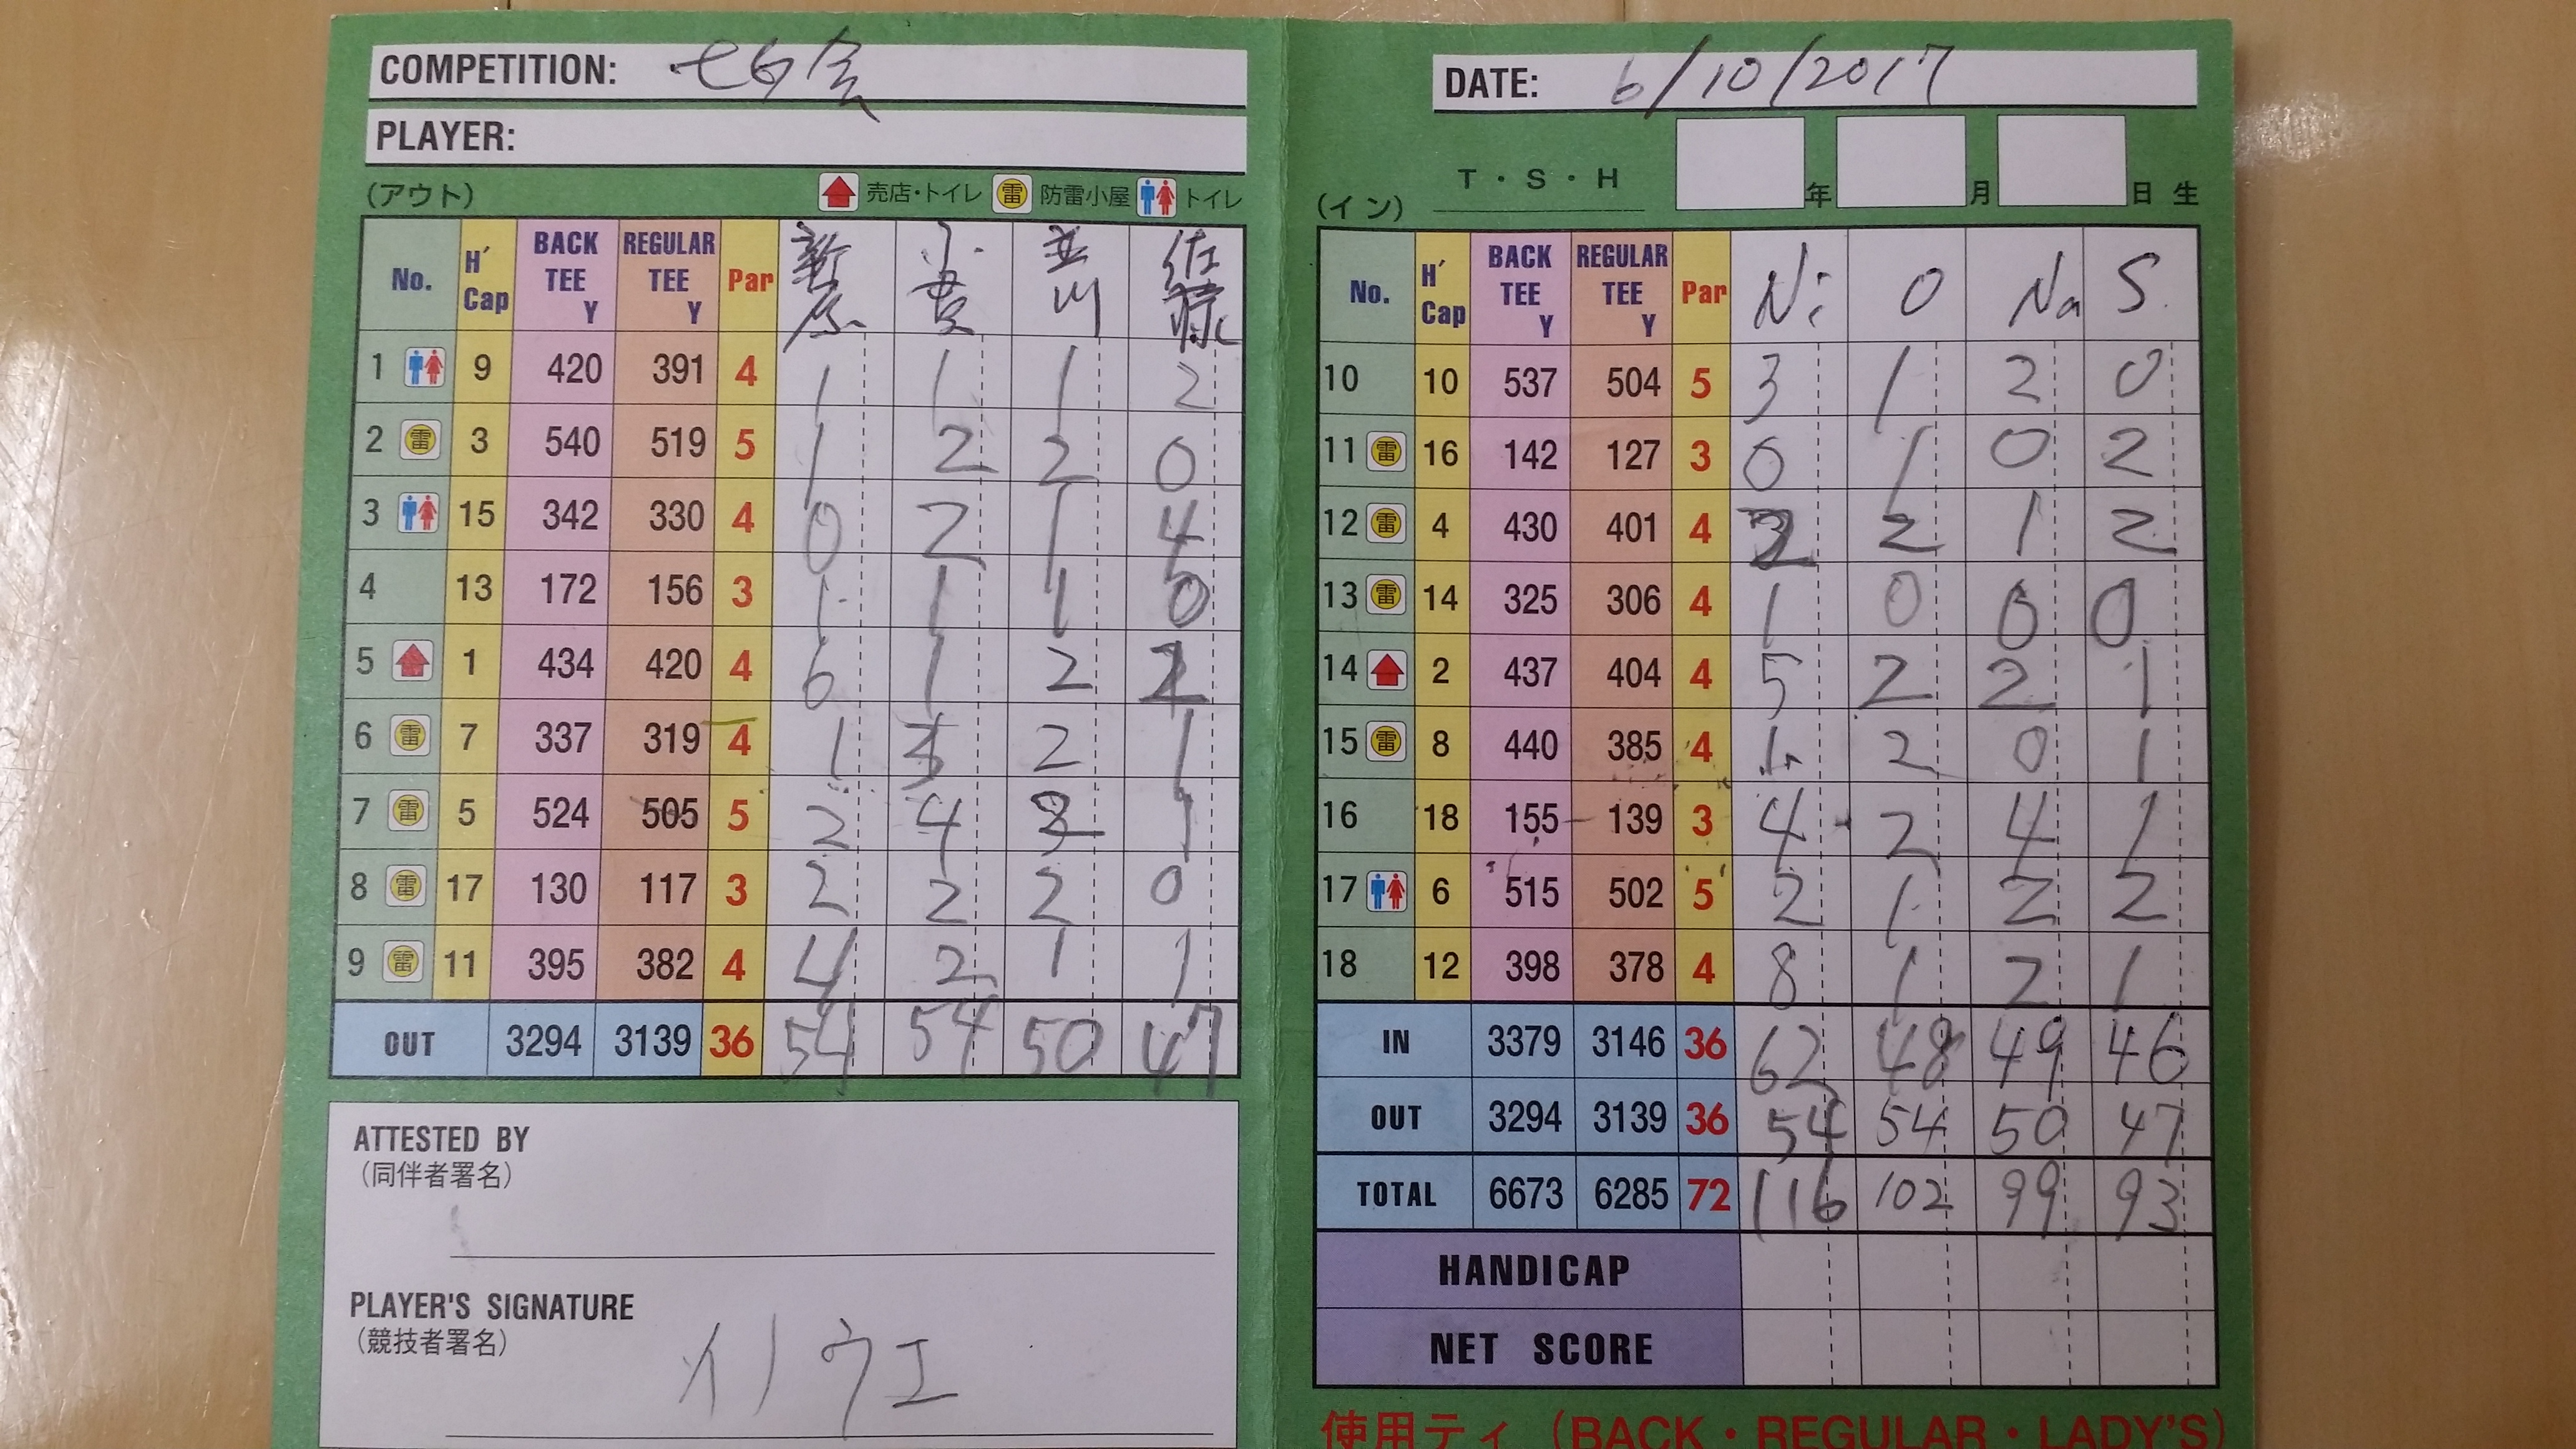 COMPETITION: 七夕会
DATE: 6/10/2017
PLAYER:
T・S・H 年 月 日 生
(アウト) 売店・トイレ 雷 防雷小屋 トイレ
No. H' Cap BACK TEE Y REGULAR TEE Y Par 新原 小貫 並川 佐藤
1 9 420 391 4 1 1 1 2
2 雷 3 540 519 5 1 2 2 0
3 15 342 330 4 0 2 1 4
4 13 172 156 3 1 1 1 0
5 1 434 420 4 6 1 2
6 雷 7 337 319 4 1 3 2 1
7 雷 5 524 505 5 2 4 1
8 雷 17 130 117 3 2 2 2 0
9 雷 11 395 382 4 4 2 1 1
OUT 3294 3139 36 54 54 50 47
ATTESTED BY
(同伴者署名)
PLAYER'S SIGNATURE
(競技者署名)
イノウエ
(イン)
No. H' Cap BACK TEE Y REGULAR TEE Y Par Ni O Na S.
10 10 537 504 5 3 1 2 0
11 雷 16 142 127 3 0 1 0 2
12 雷 4 430 401 4 2 2 1 2
13 雷 14 325 306 4 1 0 0 0
14 2 437 404 4 5 2 2 1
15 雷 8 440 385 4 1 2 0 1
16 18 155 139 3 4 2 4 1
17 6 515 502 5 2 1 2 2
18 12 398 378 4 8 1 2 1
IN 3379 3146 36 62 48 49 46
OUT 3294 3139 36 54 54 50 47
TOTAL 6673 6285 72 116 102 99 93
HANDICAP
NET SCORE
使用ティ (BACK・REGULAR・LADY'S)